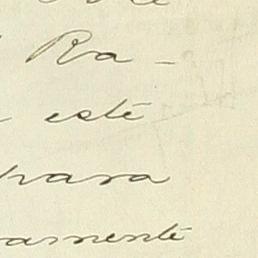 Ra-
esté
para
amente